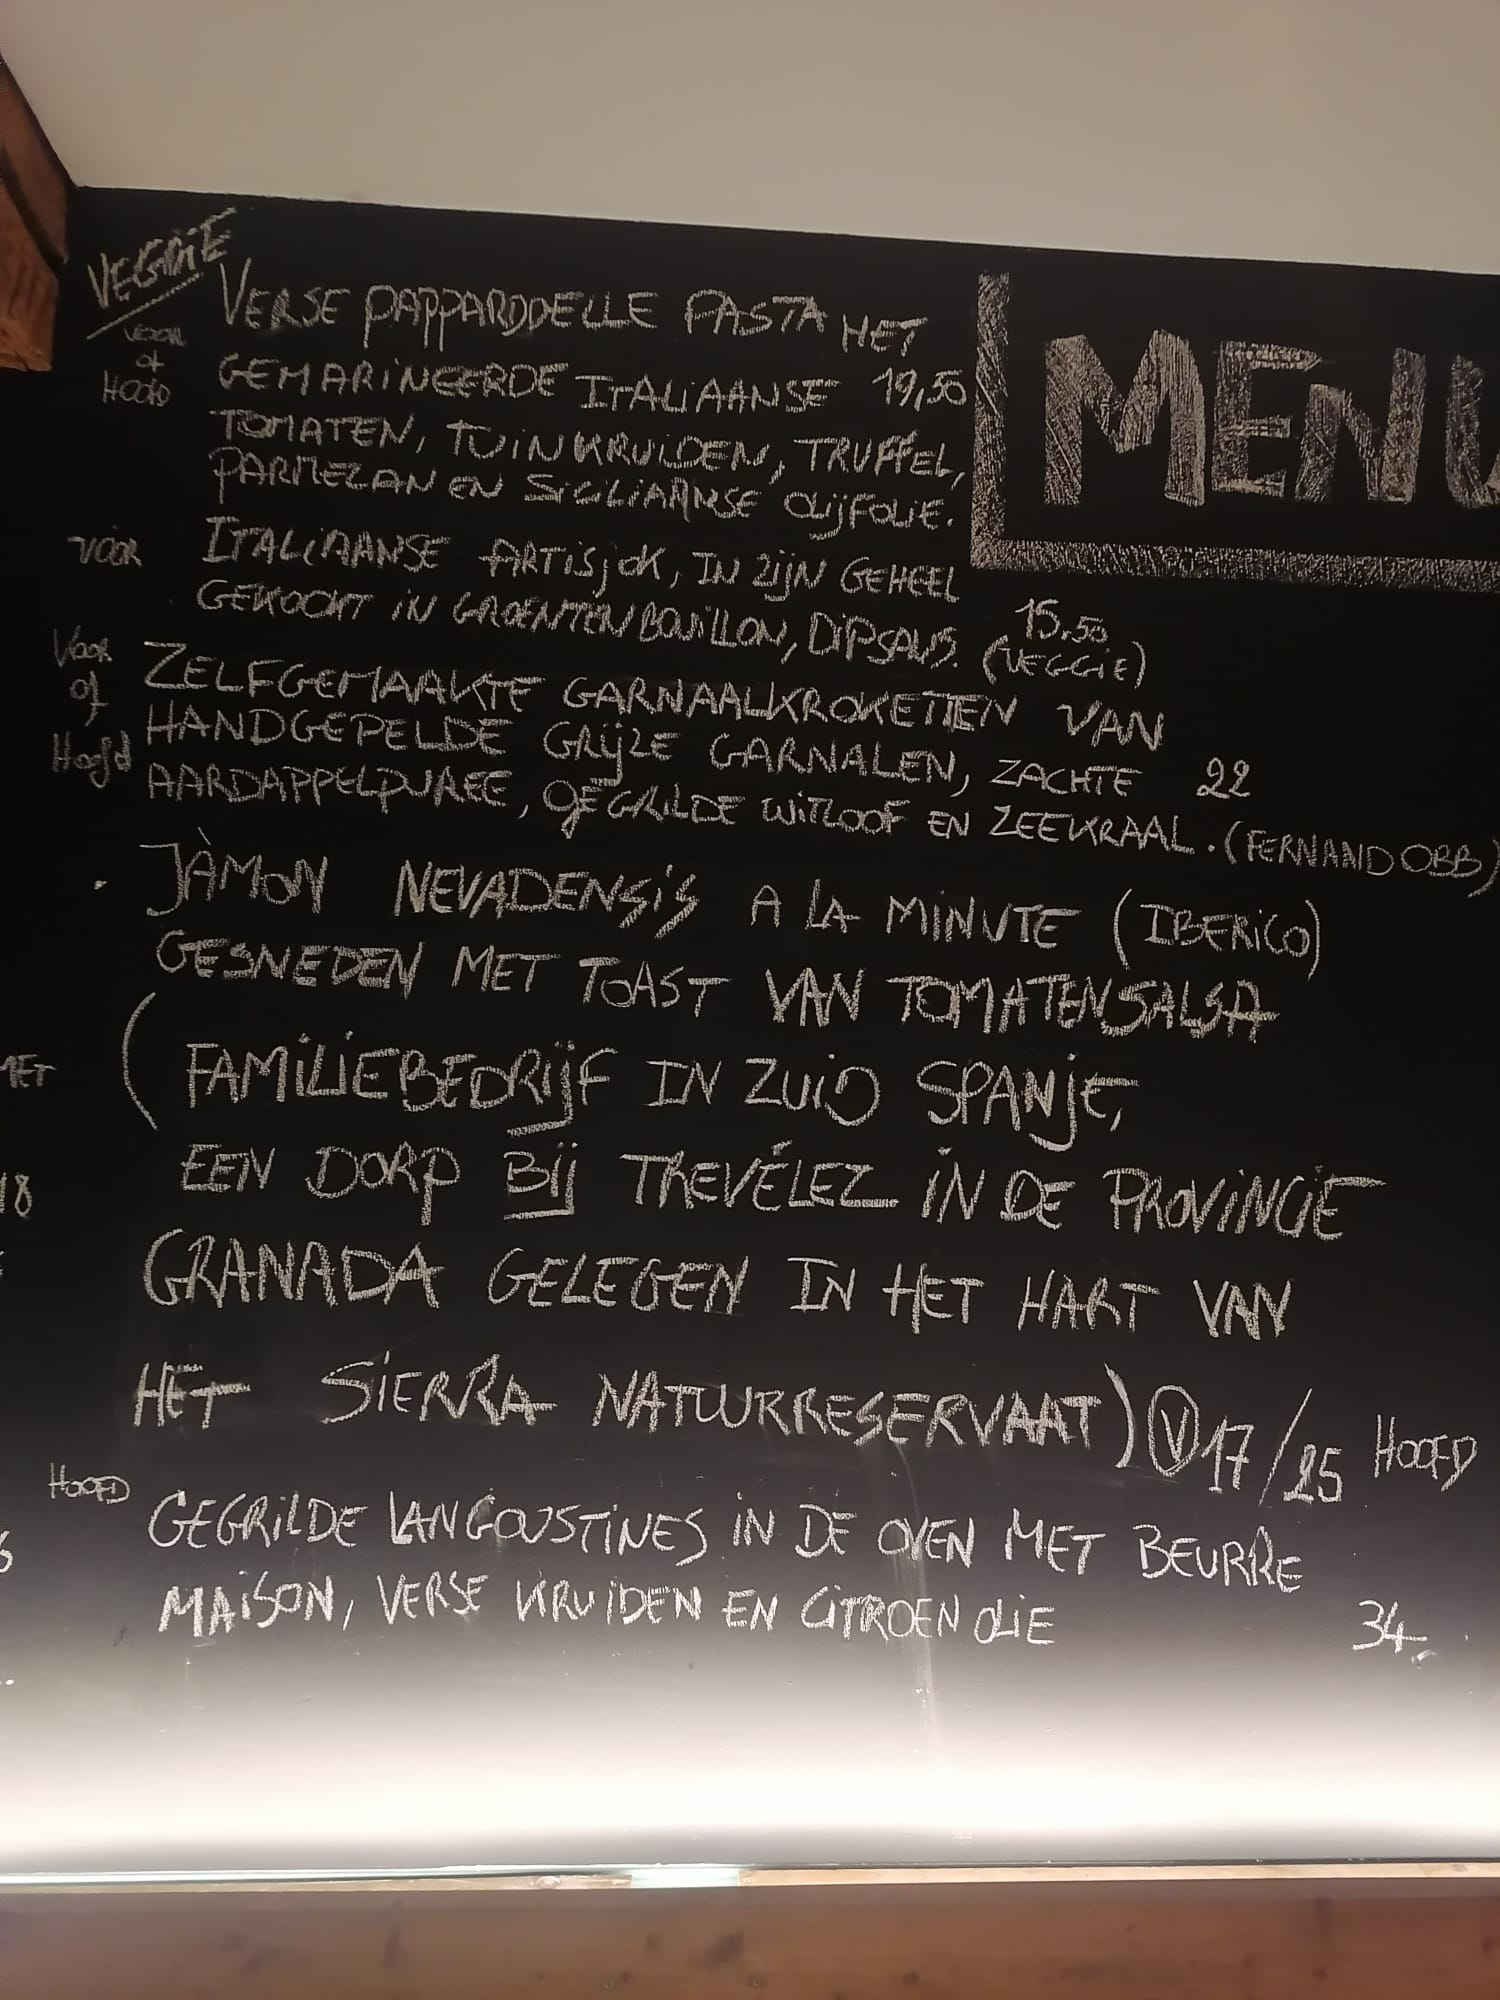 VEGGIE
VOOR
of
HOOFD
VERSE PAPPARDDELLE PASTA MET
GEMARINEERDE ITALIAANSE 19,50
TOMATEN, TUINKRUIDEN, TRUFFEL,
PARMEZAN EN SICILIAANSE OLIJFOLIE.
MENU
voor
ITALIAANSE ARTISJOK, IN ZIJN GEHEEL
GEKOOKT IN GROENTENBOUILLON, DIPSAUS. 15.50
(VEGGIE)
Voor
of
Hoofd
ZELFGEMAAKTE GARNAALKROKETTEN VAN
HANDGEPELDE GRIJZE GARNALEN, ZACHTE 22
AARDAPPELPUREE, GEGRILDE WITLOOF EN ZEEKRAAL. (FERNAND OBB)
. JÀMON NEVADENSIS A LA MINUTE (IBERICO)
GESNEDEN MET TOAST VAN TOMATENSALSA
(FAMILIEBEDRIJF IN ZUID SPANJE,
EEN DORP BIJ TREVÉLEZ IN DE PROVINCIE
GRANADA GELEGEN IN HET HART VAN
HET SIERRA NATUURRESERVAAT) V 17/25 HOOFD
HOOFD
GEGRILDE LANGOUSTINES IN DE OVEN MET BEURRE
MAISON, VERSE KRUIDEN EN CITROENOLIE 34.
18